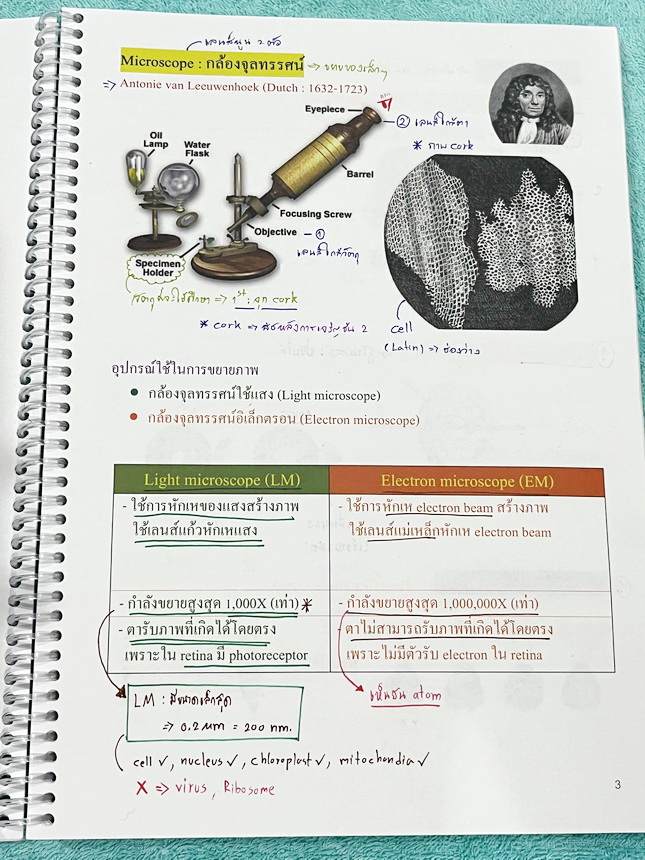 เลนส์นูน 2 ตัว
Microscope : กล้องจุลทรรศน์ => ขยายของเล็กๆ
=> Antonie van Leeuwenhoek (Dutch : 1632-1723)
Eyepiece
② เลนส์ใกล้ตา
* ภาพ cork
Oil Lamp
Water Flask
Barrel
Focusing Screw
Objective - ①
เลนส์ใกล้วัตถุ
Specimen Holder
วัตถุที่จะใช้ศึกษา => 1st : จุก cork
* cork => พืชหลังการเจริญขั้น 2
cell
(Latin) => ช่องว่าง
อุปกรณ์ใช้ในการขยายภาพ
● กล้องจุลทรรศน์ใช้แสง (Light microscope)
● กล้องจุลทรรศน์อิเล็กตรอน (Electron microscope)
Light microscope (LM)
Electron microscope (EM)
- ใช้การหักเหของแสงสร้างภาพ
ใช้เลนส์แก้วหักเหแสง
- ใช้การหักเห electron beam สร้างภาพ
ใช้เลนส์แม่เหล็กหักเห electron beam
- กำลังขยายสูงสุด 1,000X (เท่า) *
- กำลังขยายสูงสุด 1,000,000X (เท่า)
- ตารับภาพที่เกิดได้โดยตรง
เพราะใน retina มี photoreceptor
- ตาไม่สามารถรับภาพที่เกิดได้โดยตรง
เพราะไม่มีตัวรับ electron ใน retina
LM : มีขนาดเล็กสุด
=> 0.2 µm = 200 nm.
เห็นชน atom
cell ✓, nucleus ✓, chloroplast ✓, mitochondia ✓
X => virus, Ribosome
3